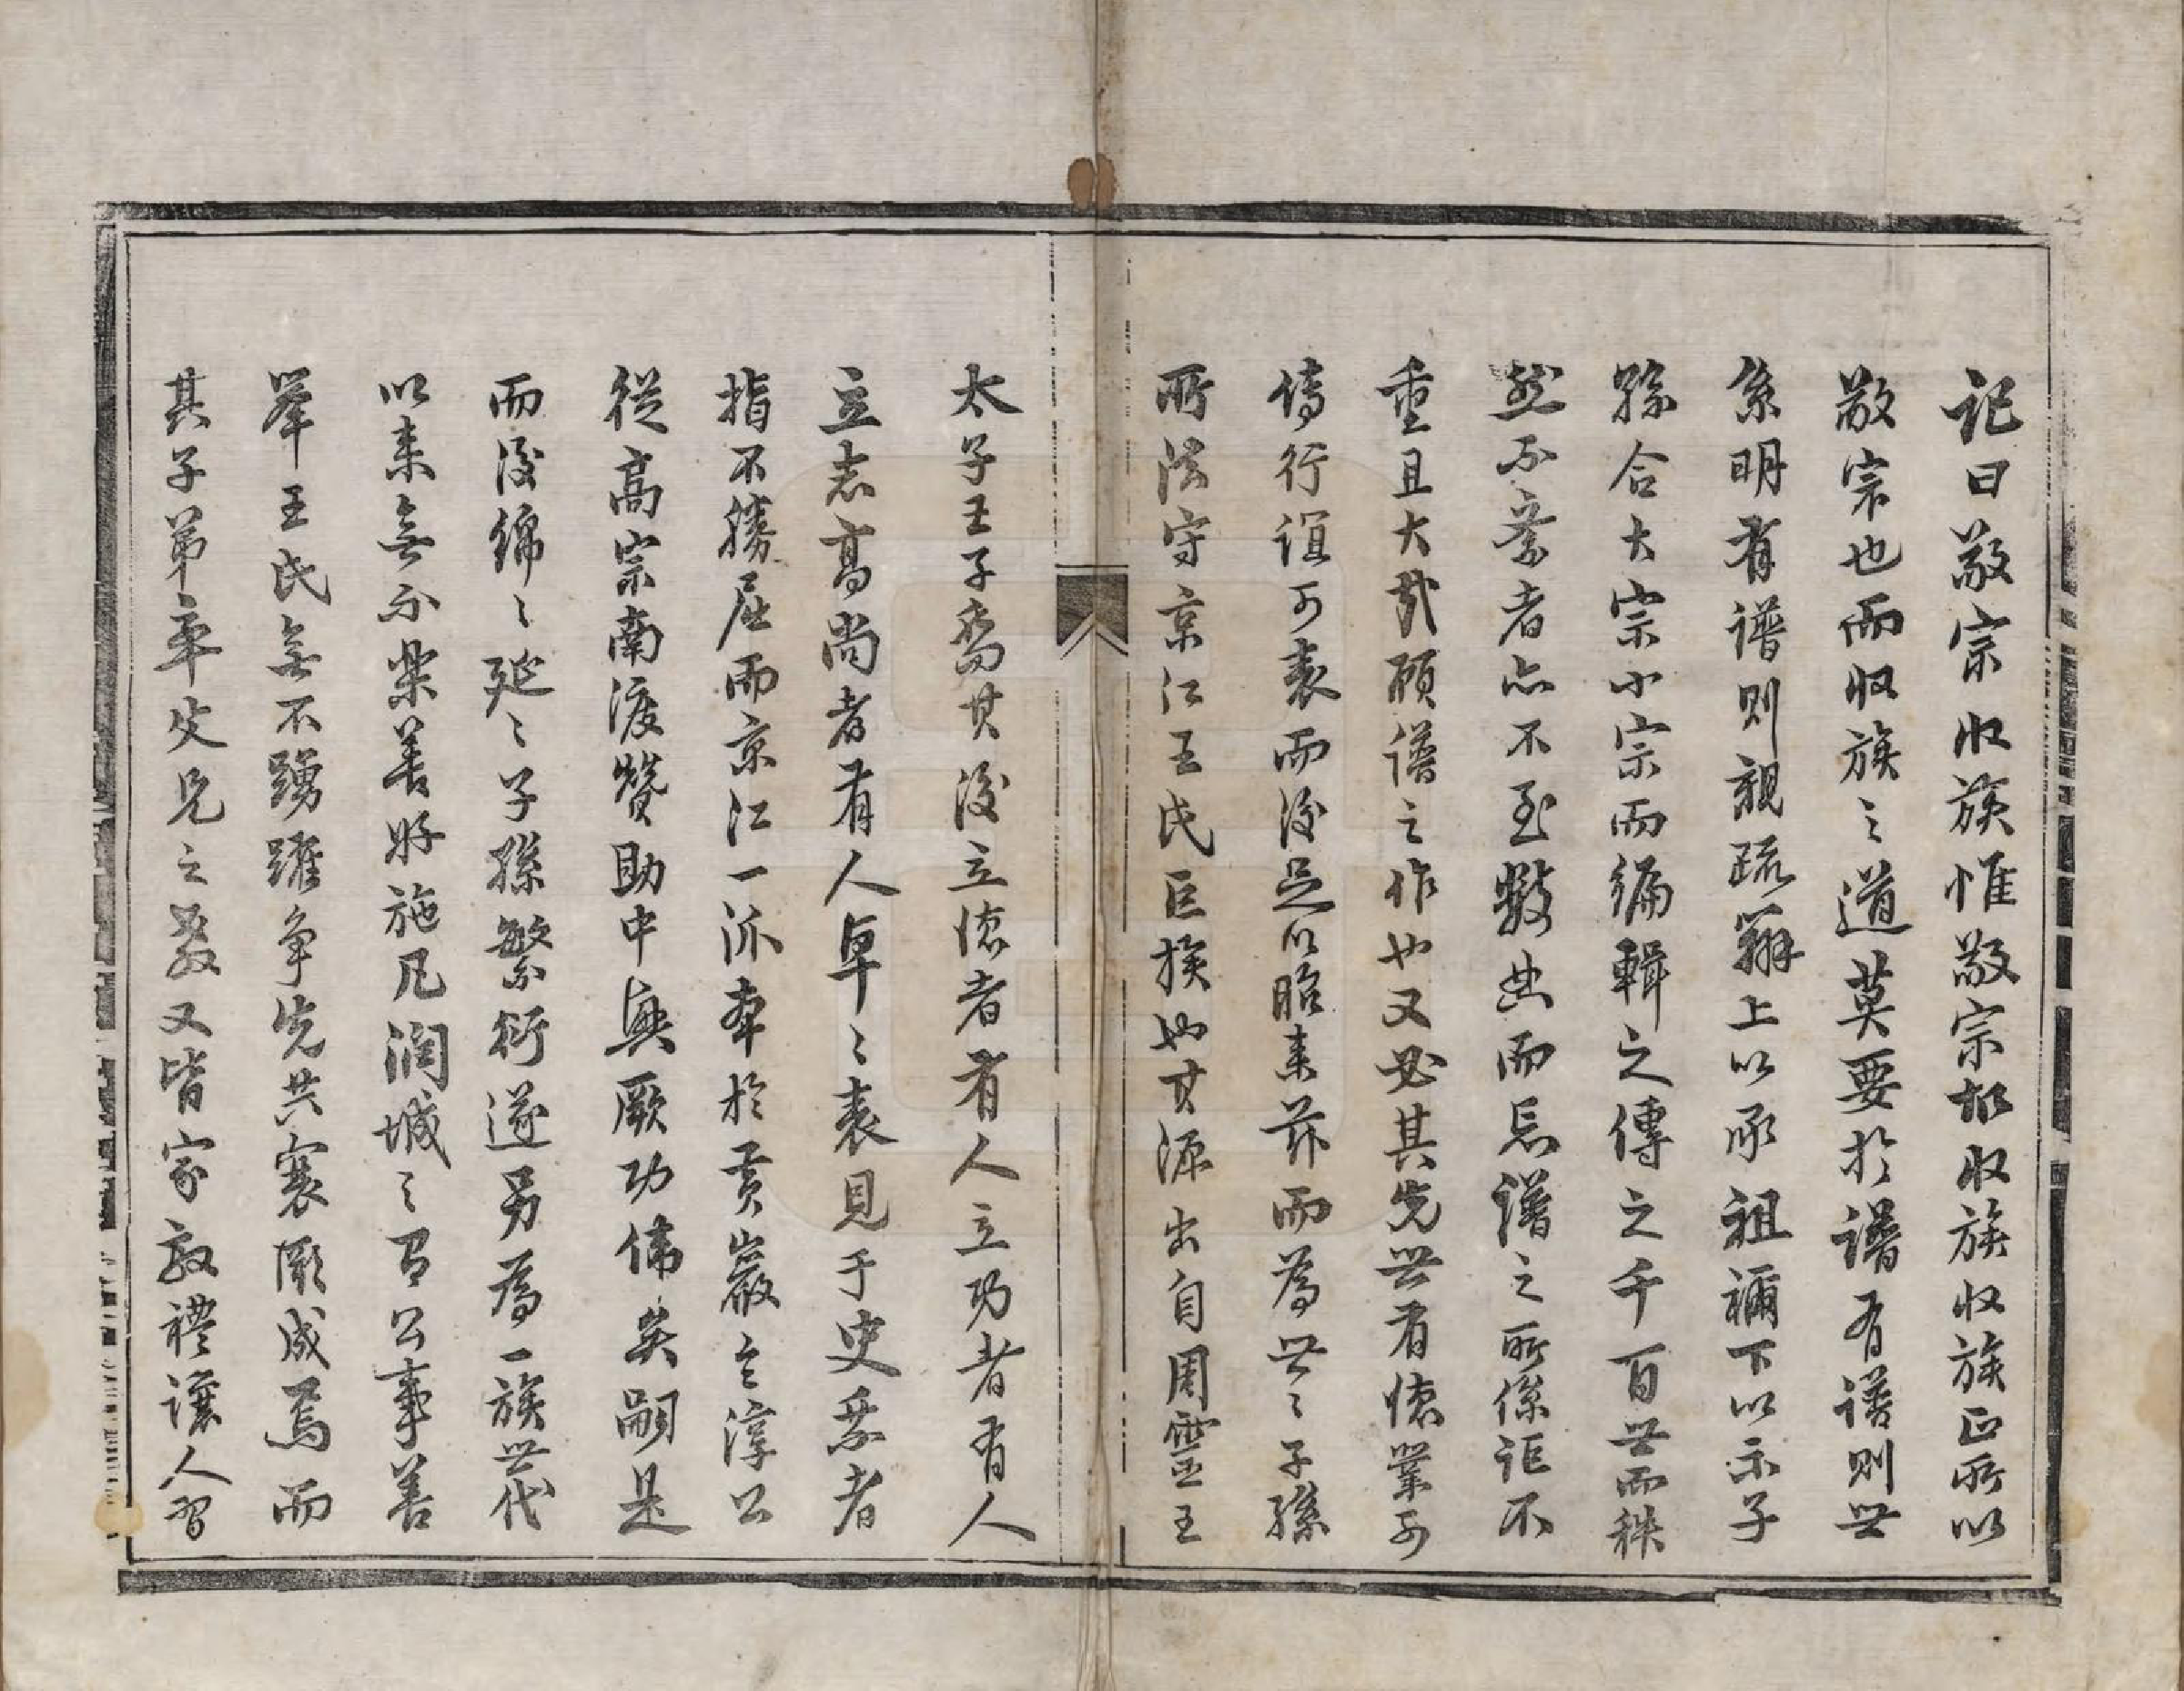 記曰敬宗收族惟敬宗故收族收族正所以
敬宗也而收族之道莫要於譜有譜則世
系明有譜則親疏辨上以承祖禰下以示子
孫合大宗小宗而編輯之傳之千百世而秩
然不紊者亦不至數典而忘譜之所係詎不
重且大哉顧譜之作也又必其先世有德業可
傳行誼可表而後足以昭来茲而為世〻子孫
所法守京江王氏巨族也其源出自周靈王
太子王子喬其後立德者有人立功者有人
立志高尚者有人卓〻表見于史乘者
指不勝屈而京江一派本於貢巖之淳公
從高宗南渡贊助中興厥功偉矣嗣是
而後綿〻延〻子孫繁衍遂另為一族世代
以来無不樂善好施凡潤城之有公事善
舉王氏無不踴躍争先共襄厥成焉而
其子弟率父兄之教又皆家敦禮讓人習